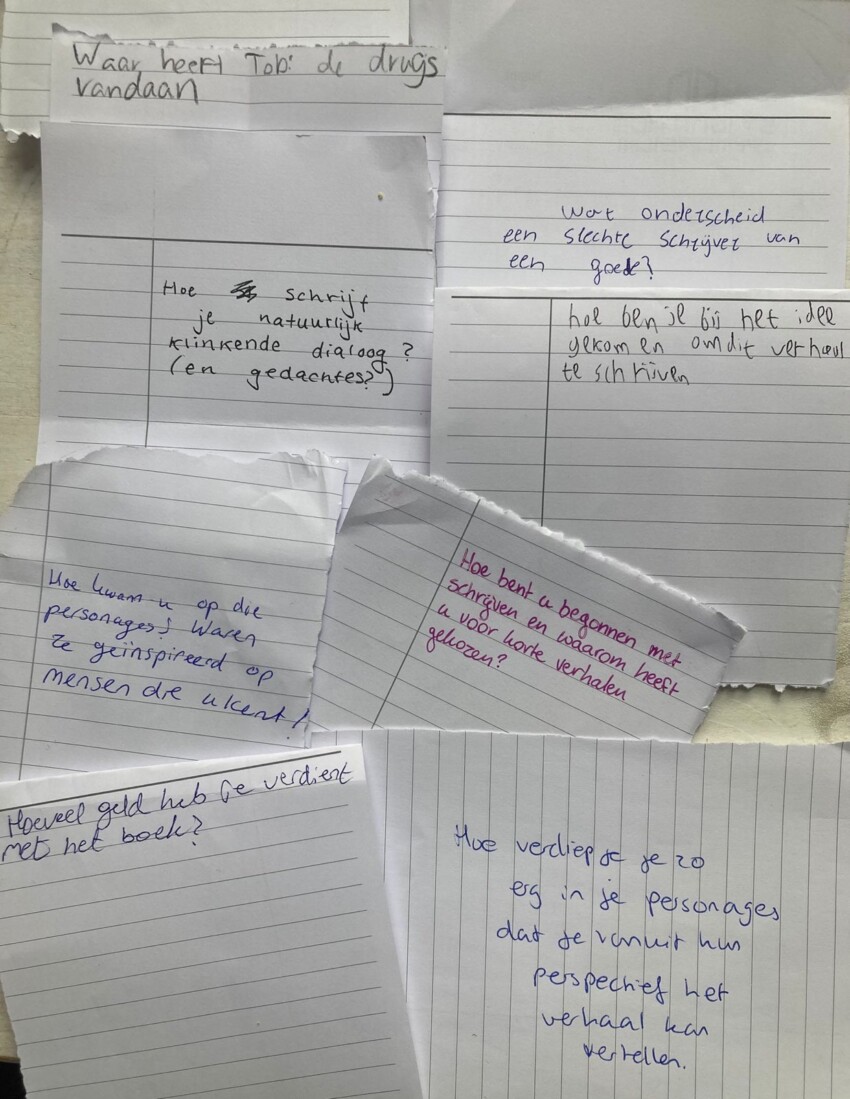 Waar heeft Tobi de drugs
vandaan
Wat onderscheid
een slechte schrijver van
een goede?
Hoe schrijf
je natuurlijk
klinkende dialoog?
(en gedachtes?)
hoe ben je bij het idee
gekomen om dit verhaal
te schrijven
Hoe kwam u op die
personages? Waren
ze geïnspireerd op
mensen die u kent?
Hoe bent u begonnen met
schrijven en waarom heeft
u voor korte verhalen
gekozen?
Hoeveel geld heb je verdient
met het boek?
Hoe verdiep je je zo
erg in je personages
dat je vanuit hun
perspectief het
verhaal kan
vertellen.